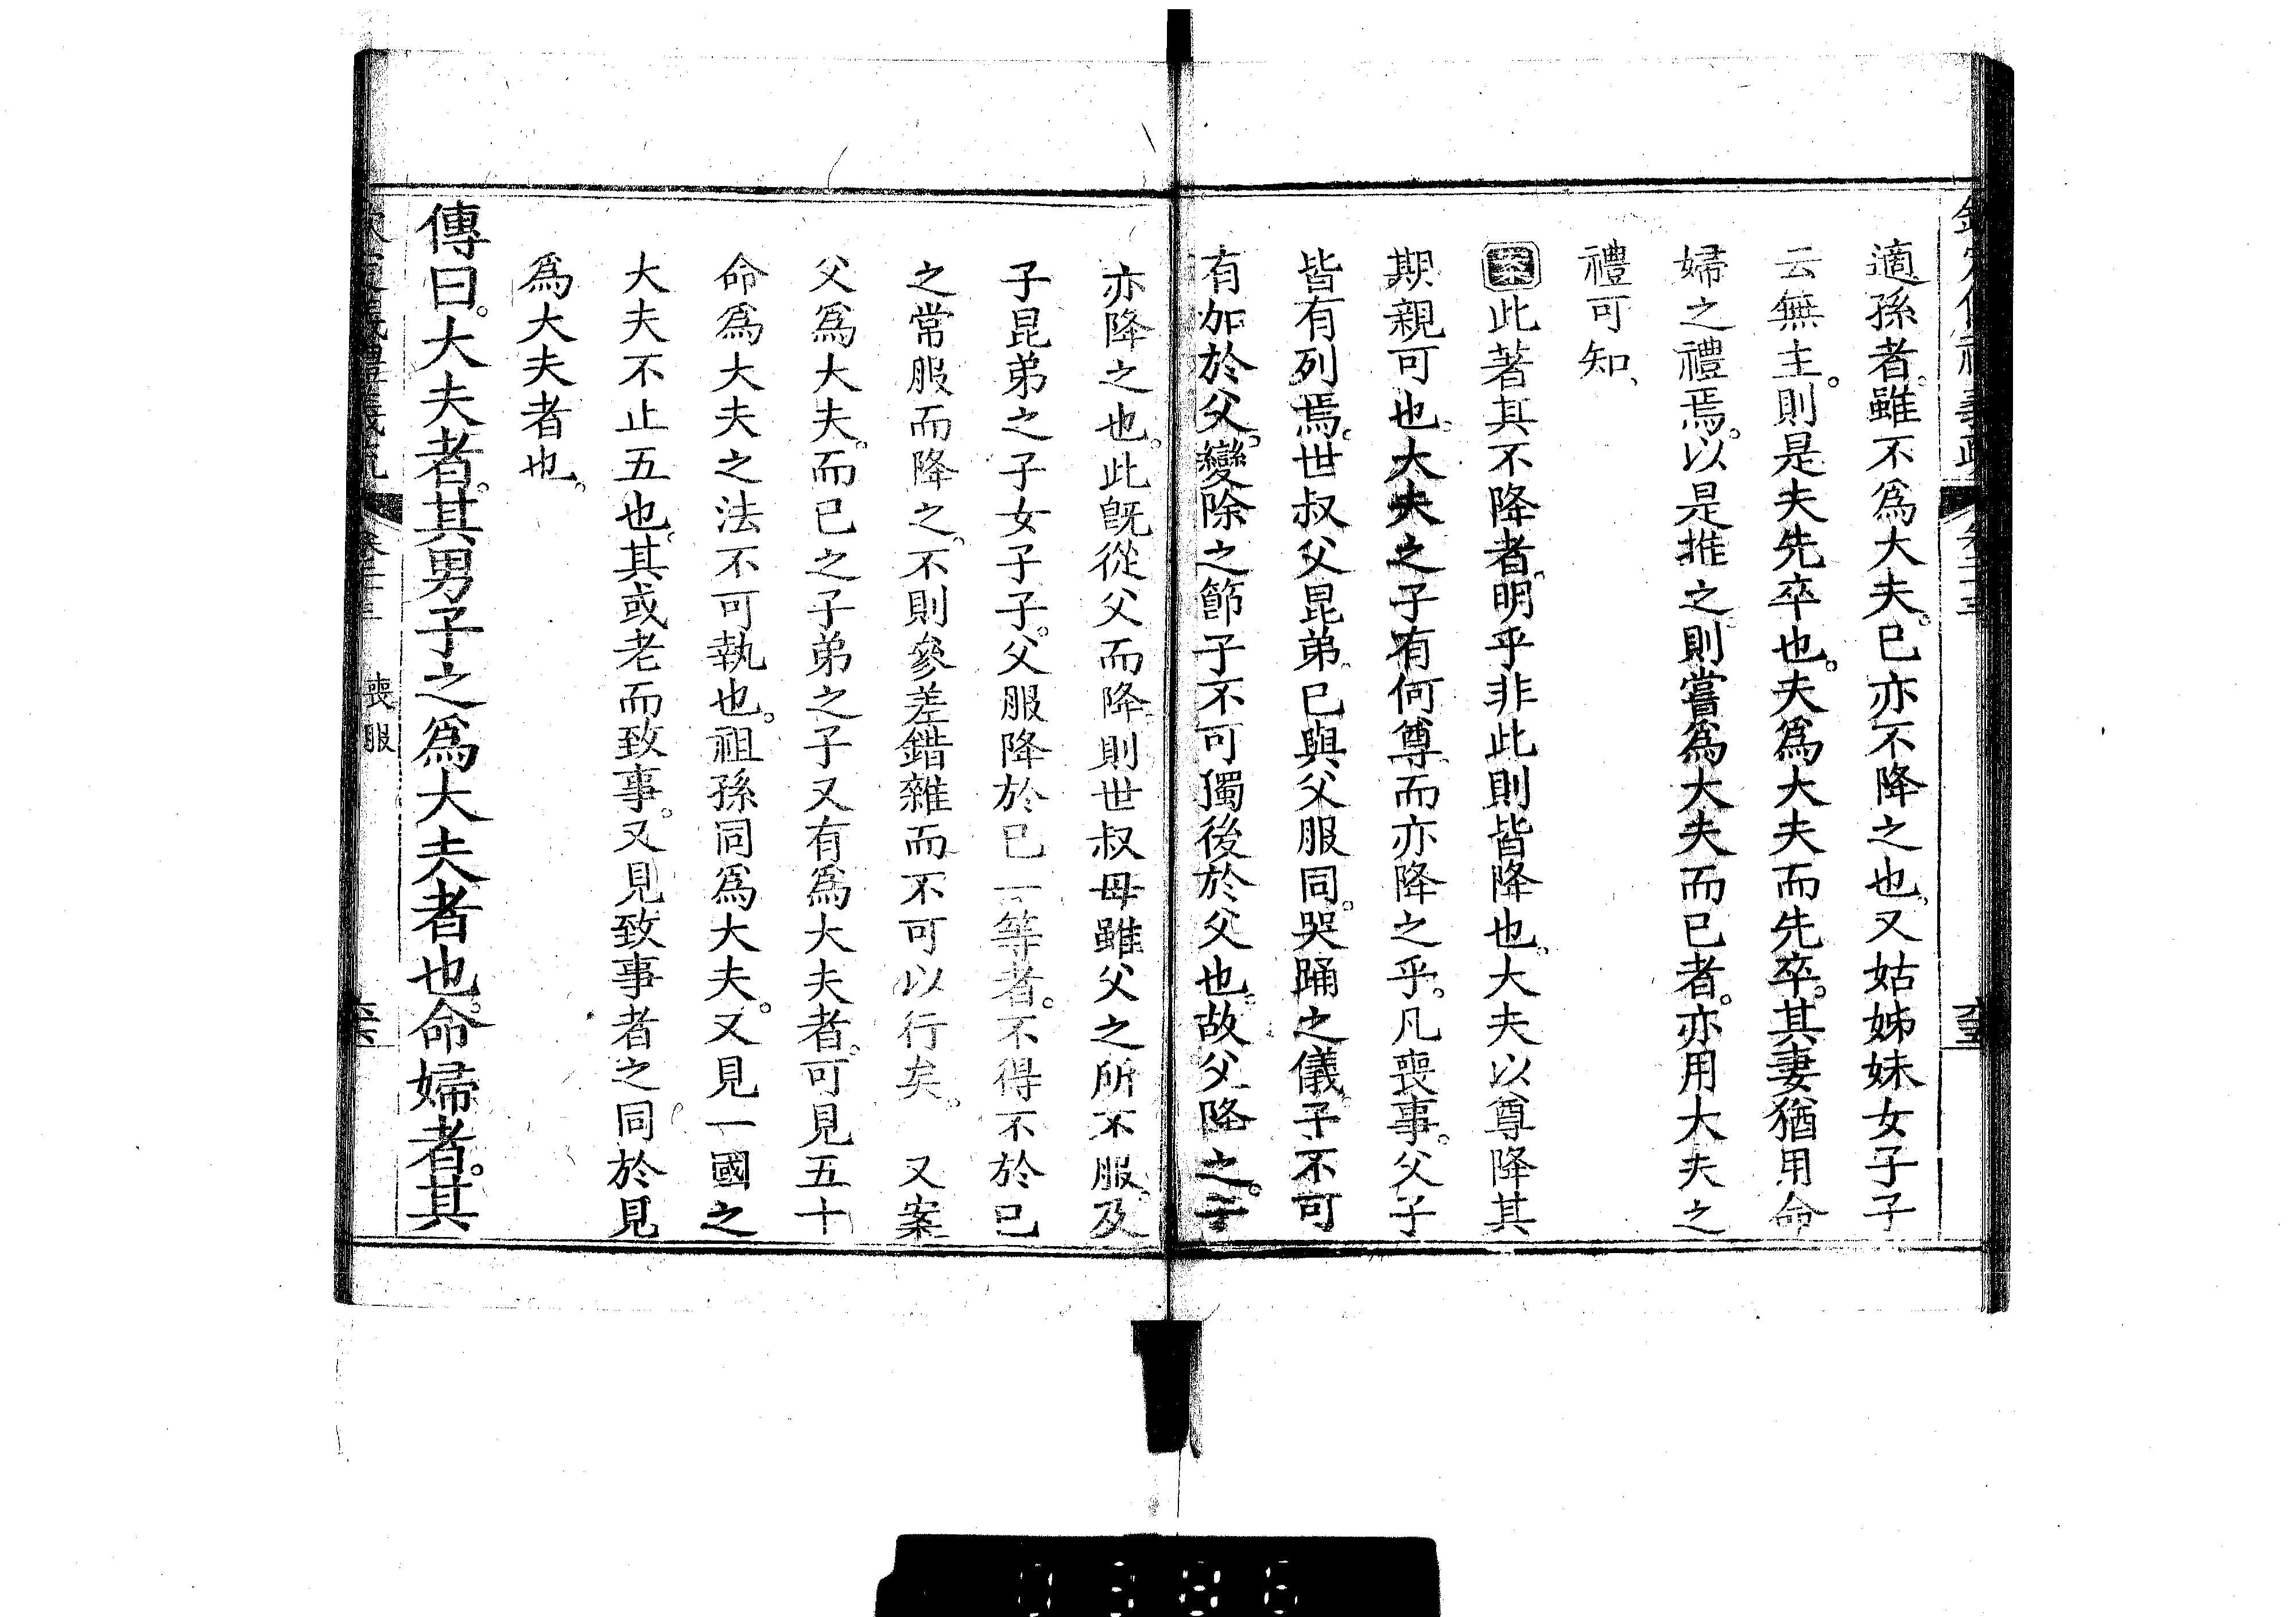 適孫者。雖不爲大夫。已亦不降之也。又姑姊妹女子子
云無主。則是夫先卒也。夫爲大夫而先卒。其妻猶用命
婦之禮焉。以是推之。則嘗爲大夫而已者。亦用大夫之
禮可知、
案此著其不降者。明乎非此則皆降也。大夫以尊降其
期親可也。大夫之子有何尊而亦降之乎。凡喪事。父子
皆有列焉。世叔父昆弟。已與父服同。哭踊之儀。子不可
有加於父。變除之節子不可獨後於父也。故父降之。子
亦降之也。此旣從父而降。則世叔母雖父之所不服。及
子昆弟之子女子子。父服降於已一等者。不得不於已
之常服而降之。不則參差錯雜而不可以行矣。 又案
父爲大夫。而已之子弟之子又有爲大夫者。可見五十
命爲大夫之法不可執也。祖孫同爲大夫。又見一國之
大夫不止五也。其或老而致事。又見致事者之同於見
爲大夫者也。
傳曰。大夫者。其男子之爲大夫者也。命婦者。其
喪服